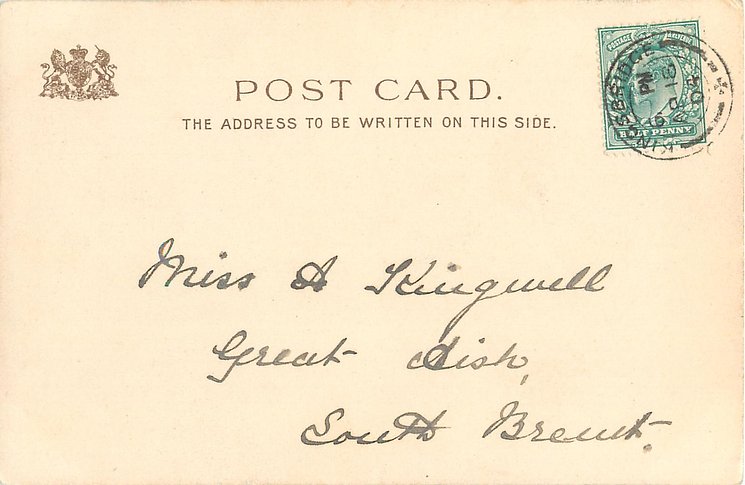 POST CARD.
THE ADDRESS TO BE WRITTEN ON THIS SIDE.
POSTAGE REVENUE
HALF PENNY
KINGSBRIDGE
PM
AP 18
04
Miss A Kingwell
Great Aish,
South Brent.